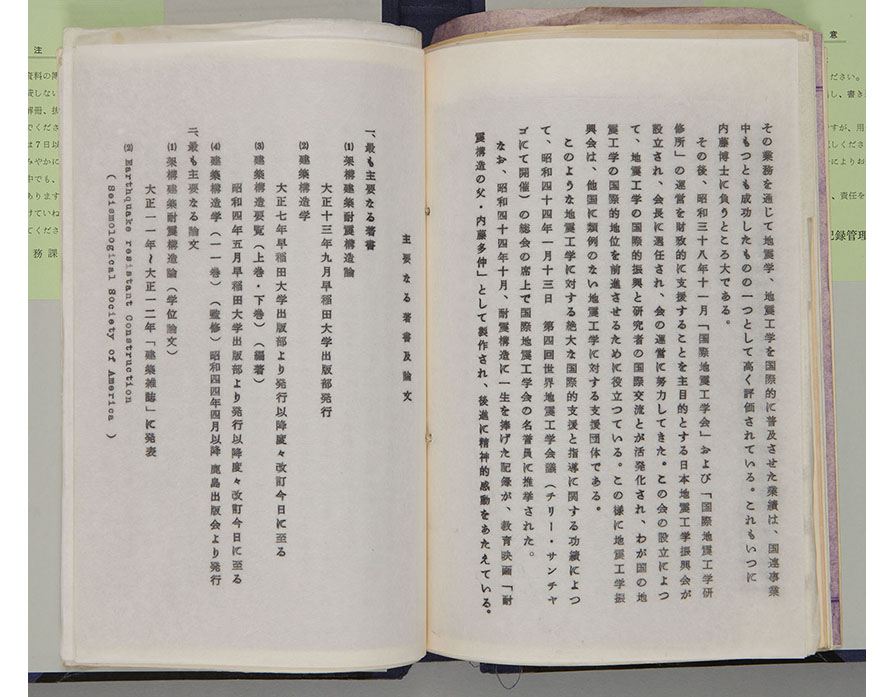 その業務を通じて地震学、地震工学を国際的に普及させた業績は、国連事業
中もつとも成功したものの一つとして高く評価されている。これもいつに
内藤博士に負うところ大である。
その後、昭和三十八年十一月「国際地震工学会」および「国際地震工学研
修所」の運営を財政的に支援することを主目的とする日本地震工学振興会が
設立され、会長に選任され、会の運営に努力してきた。この会の設立によつ
て、地震工学の国際的振興と研究者の国際交流とが活発化され、わが国の地
震工学の国際的地位を前進させるために役立つている。この様に地震工学振
興会は、他国に類例のない地震工学に対する支援団体である。
このような地震工学に対する絶大な国際的支援と指導に関する功績によつ
て、昭和四十四年一月十三日 第四回世界地震工学会議（チリー・サンチヤ
ゴにて開催）の総会の席上で国際地震工学会の名誉員に推挙された。
なお、昭和四十四年十月、耐震構造に一生を捧げた記録が、教育映画「耐
震構造の父・内藤多仲」として製作され、後進に精神的感動をあたえている。
主要なる著書及論文
一、最も主要なる著書
(1) 架構建築耐震構造論
大正十三年九月早稲田大学出版部発行
(2) 建築構造学
大正七年早稲田大学出版部より発行以降度々改訂今日に至る
(3) 建築構造要覧（上巻・下巻）（編著）
昭和四年五月早稲田大学出版部より発行以降度々改訂今日に至る
(4) 建築構造学（一一巻）（監修）昭和四四年四月以降 鹿島出版会より発行
二、最も主要なる論文
(1) 架構建築耐震構造論（学位論文）
大正一一年～大正一二年「建築雑誌」に発表
(2) Earthquake resistant Construction
( Seismological Society of America )
注
資料の
費しない
解冊、
でくださ
は７日以
みやかに
中でも、
あります
けていね
てくださ
務課
意
ださい。
し、書き
すが、用
しくださ
によりお
、責任を
記録管理